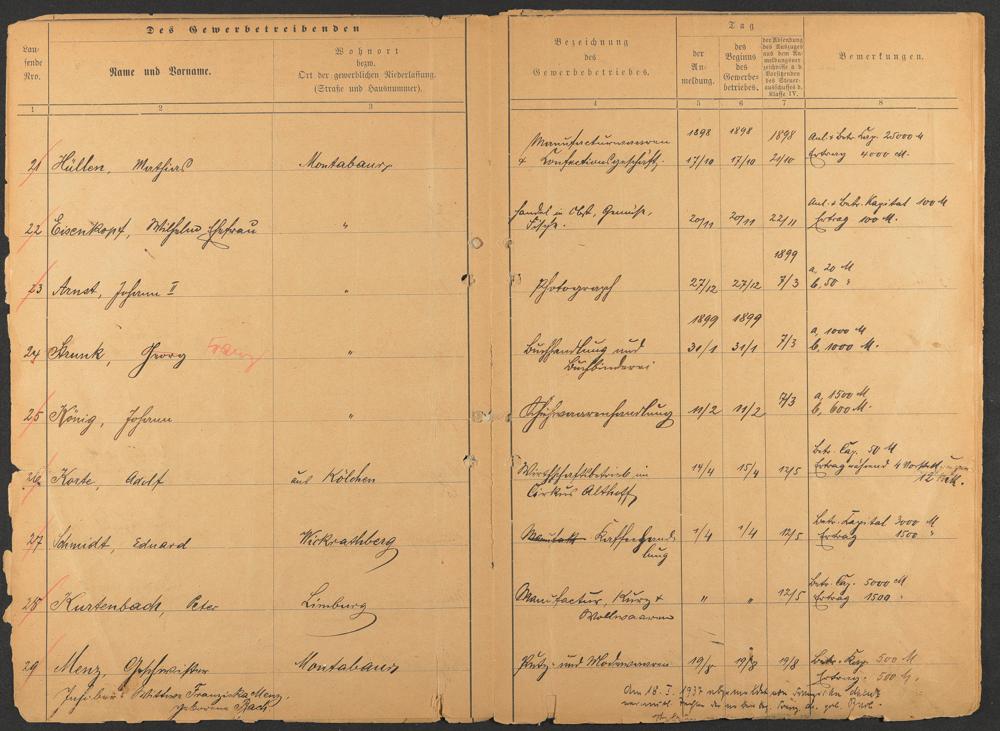 Des Gewerbetreibenden
Lau-
fende
Nro.
Name und Vorname.
Wohnort
bezw.
Ort der gewerblichen Niederlassung.
(Straße und Hausnummer).
Bezeichnung
des
Gewerbebetriebes.
Tag
der
An-
meldung.
des
Beginns
des
Gewerbe-
betriebes.
der Absendung
des Auszuges
aus dem An-
meldungsver-
zeichnisse a. d.
Vorsitzenden
des Steuer-
ausschusses d.
Klasse IV.
Bemerkungen.
1 2 3 4 5 6 7 8
1898 1898 1898 Anl. & Betr. Cap. 25000 M
Manufacturwaaren
21 Hüllen, Mathias Montabaur & Confectionsgeschäft, 17/10 17/10 21/10 Ertrag 4000 M.
Handel in Obst, Gemüse, Anl. & Betr. Kapital 100 M
22 Eisenkopf, Wilhelm Ehefrau " Fische. 20/11 20/11 22/11 Ertrag 100 M.
1899
a, 20 M
23 Arnst, Johann II " Photograph 27/12 27/12 7/3 b, 50 "
1899 1899
a, 1000 M
24 Strunk, Georg Franz " Buchhandlung und 31/1 31/1 7/3 b, 1000 M.
Buchbinderei
a, 1500 M
25 König, Johann " Schuhwaarenhandlung 11/2 11/2 7/3 b, 600 M.
Betr. Cap. 50 M
26 Korte, Adolf aus Kölchen Wirthschaftsbetrieb im 14/4 15/4 12/5 Ertrag während 4 Vorstellungen
Cirkus Althoff 12 M.
Betr. Kapital 3000 M
27 Schmidt, Eduard Wickrathberg Kaffeehand- 1/4 1/4 12/5 Ertrag 1500 "
lung
Betr. Cap. 5000 M
28 Kurtenbach, Peter Limburg Manufactur, Kurz & " " 12/5 Ertrag 1500 "
Wollwaaren
29 Menz, Geschwister Montabaur Putz- und Modewaaren 19/8 19/8 19/8 Betr. Kap. 500 M
Ertrag. 500 M.
Inhaber: Wittwe Franziska Menz,
geborene Bach
Am 18. I. 1937 abgemeldet von Franziska Menz